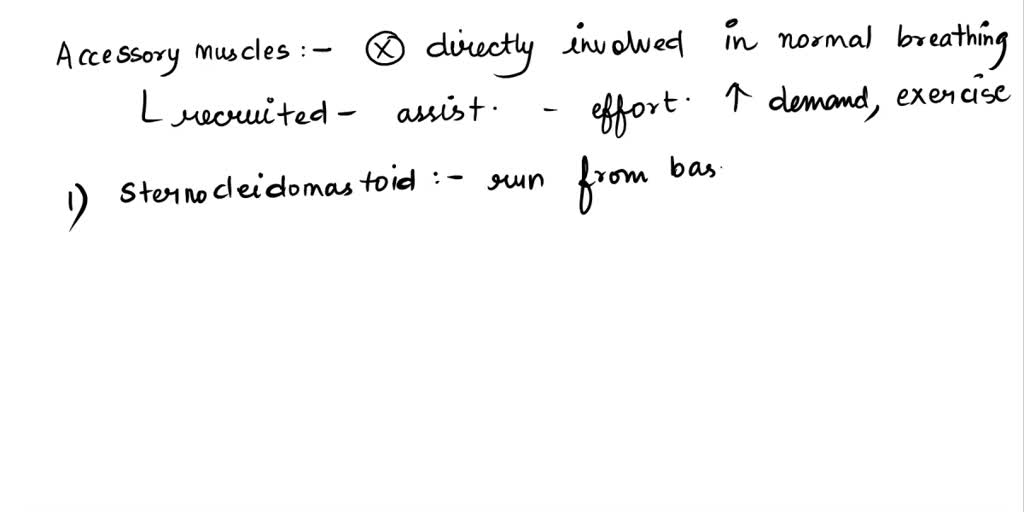 Accessory muscles :- ⓧ directly involved in normal breathing
L recruited - assist. - effort. ↑ demand, exercise
1) Sternocleidomastoid :- run from bas